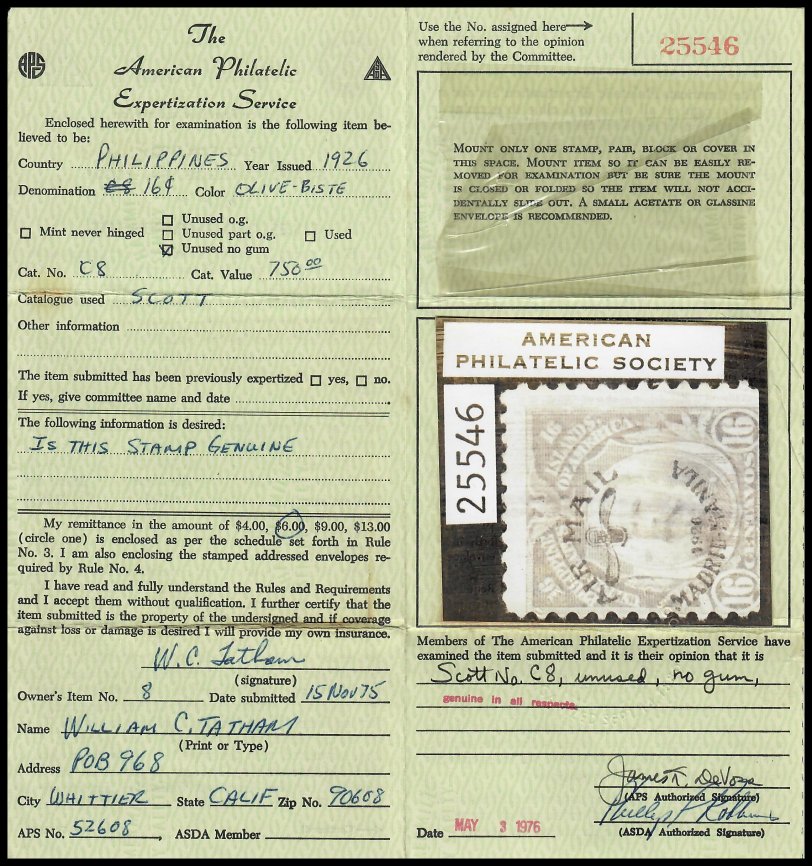 The
APS
American Philatelic
ASDA
Expertization Service
Enclosed herewith for examination is the following item be-
lieved to be:
Country PHILIPPINES Year Issued 1926
Denomination C8 16¢ Color OLIVE-BISTE
Unused o.g.
Mint never hinged Unused part o.g. Used
Unused no gum
Cat. No. C8 Cat. Value 750.00
Catalogue used SCOTT
Other information
The item submitted has been previously expertized yes, no.
If yes, give committee name and date
The following information is desired:
IS THIS STAMP GENUINE
My remittance in the amount of $4.00, $6.00, $9.00, $13.00
(circle one) is enclosed as per the schedule set forth in Rule
No. 3. I am also enclosing the stamped addressed envelopes re-
quired by Rule No. 4.
I have read and fully understand the Rules and Requirements
and I accept them without qualification. I further certify that the
item submitted is the property of the undersigned and if coverage
against loss or damage is desired I will provide my own insurance.
W. C. Tatham
(signature)
Owner's Item No. 8 Date submitted 15 NOV 75
Name WILLIAM C. TATHAM
(Print or Type)
Address POB 968
City WHITTIER State CALIF Zip No. 90608
APS No. 52608, ASDA Member
Use the No. assigned here
when referring to the opinion
rendered by the Committee.
25546
MOUNT ONLY ONE STAMP, PAIR, BLOCK OR COVER IN
THIS SPACE. MOUNT ITEM SO IT CAN BE EASILY RE-
MOVED FOR EXAMINATION BUT BE SURE THE MOUNT
IS CLOSED OR FOLDED SO THE ITEM WILL NOT ACCI-
DENTALLY SLIDE OUT. A SMALL ACETATE OR GLASSINE
ENVELOPE IS RECOMMENDED.
AMERICAN
PHILATELIC SOCIETY
25546
16
16
AIR MAIL
1926
MADRID-MANILA
16
16
Members of The American Philatelic Expertization Service have
examined the item submitted and it is their opinion that it is
Scott No. C8, unused, no gum,
genuine in all respects.
James T. DeVoss
(APS Authorized Signature)
Date MAY 3 1976
(ASDA Authorized Signature)